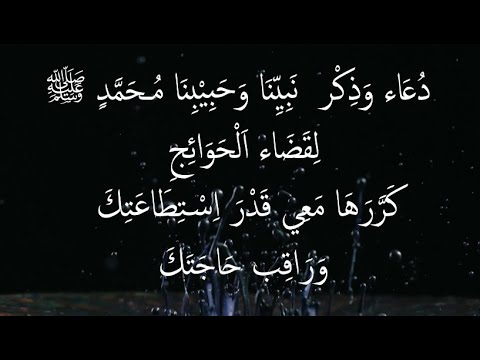 دُعَاء وَذِكْر نَبِيِّنَا وَحَبِيْبِنَا مُحَمَّدٍ ﷺ
لِقَضَاء اَلْحَوَائِجِ
كَرَّرَهَا مَعِي قَدْرَ اِسْتِطَاعَتِكَ
وَرَاقِب حَاجَتَكَ